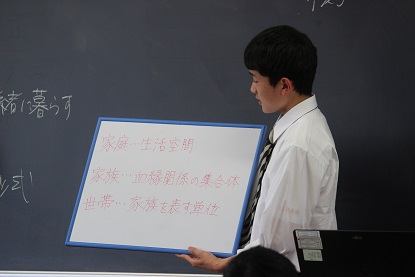 緒に暮らす
家庭…生活空間
家族…血縁関係の集合体
世帯…家族を表す単位